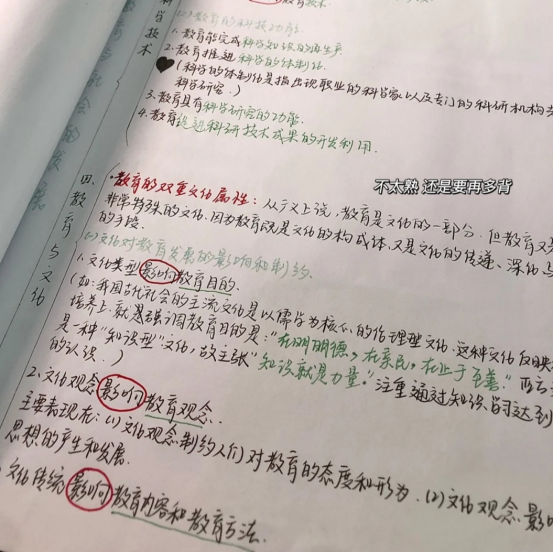 科学技术
(二)教育的科技功能
1.教育能完成科学知识的再生产.
2.教育推进科学的体制化.
(科学的体制化是指出现职业的科学家以及专门的科研机构
科学研究.)
3.教育具有科学研究的功能.
4.教育促进科研技术成果的开发利用.
不太熟 还是要再多背
四、教育与文化
·教育的双重文化属性:从广义上说,教育是文化的一部分.但教育又
非常特殊的文化.因为教育既是文化的构成体,又是文化的传递、深化
的手段.
(一)文化对教育发展的影响和制约.
1.文化类型影响教育目的.
(如:我国古代社会的主流文化是以儒学为核心的伦理型文化.这种文化反映
培养上,就是强调教育目的是:"在明明德,在亲民,在止于至善."而
是一种"知识型"文化,故主张"知识就是力量."注重通过知识学习达到
的认识.)
2.文化观念影响教育观念.
主要表现在:(1)文化观念制约人们对教育的态度和行为.(2)文化观念影响
思想的产生和发展.
文化传统影响教育内容和教育方法.